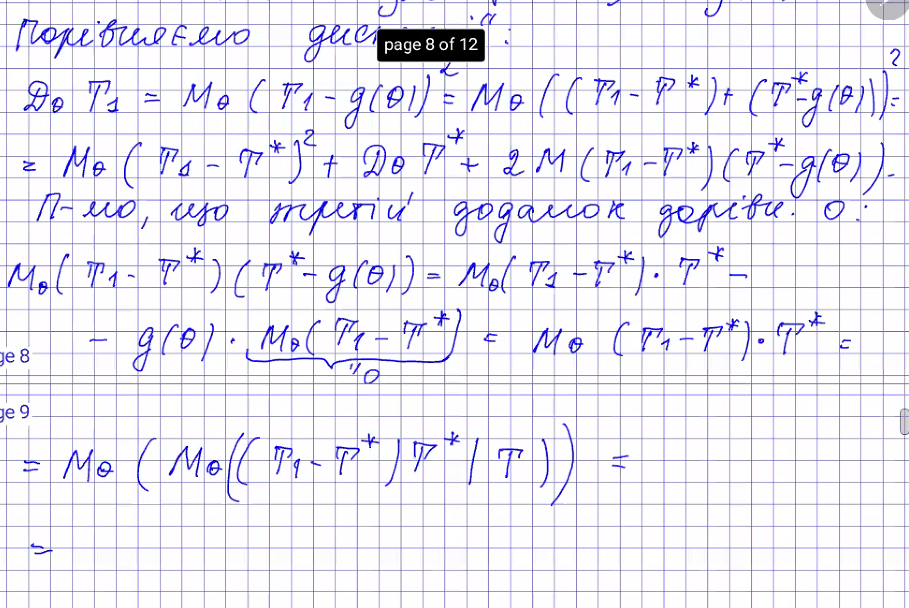 Порівняємо
page 8 of 12
D_θ T_1 = M_θ ( T_1 - g(θ))^2 = M_θ ( ( T_1 - T^*) + (T^* - g(θ)))^2 =
= M_θ ( T_1 - T^*)^2 + D_θ T^* + 2 M ( T_1 - T^*) ( T^* - g(θ)).
П-мо, що третій доданок дорівн. 0:
M_θ ( T_1 - T^*) ( T^* - g(θ)) = M_θ( T_1 - T^*) · T^* -
- g(θ) · M_θ( T_1 - T^*) = M_θ ( T_1 - T^*) · T^* =
"0
ge 8
ge 9
= M_θ ( M_θ(( T_1 - T^*) T^* | T )) =
=